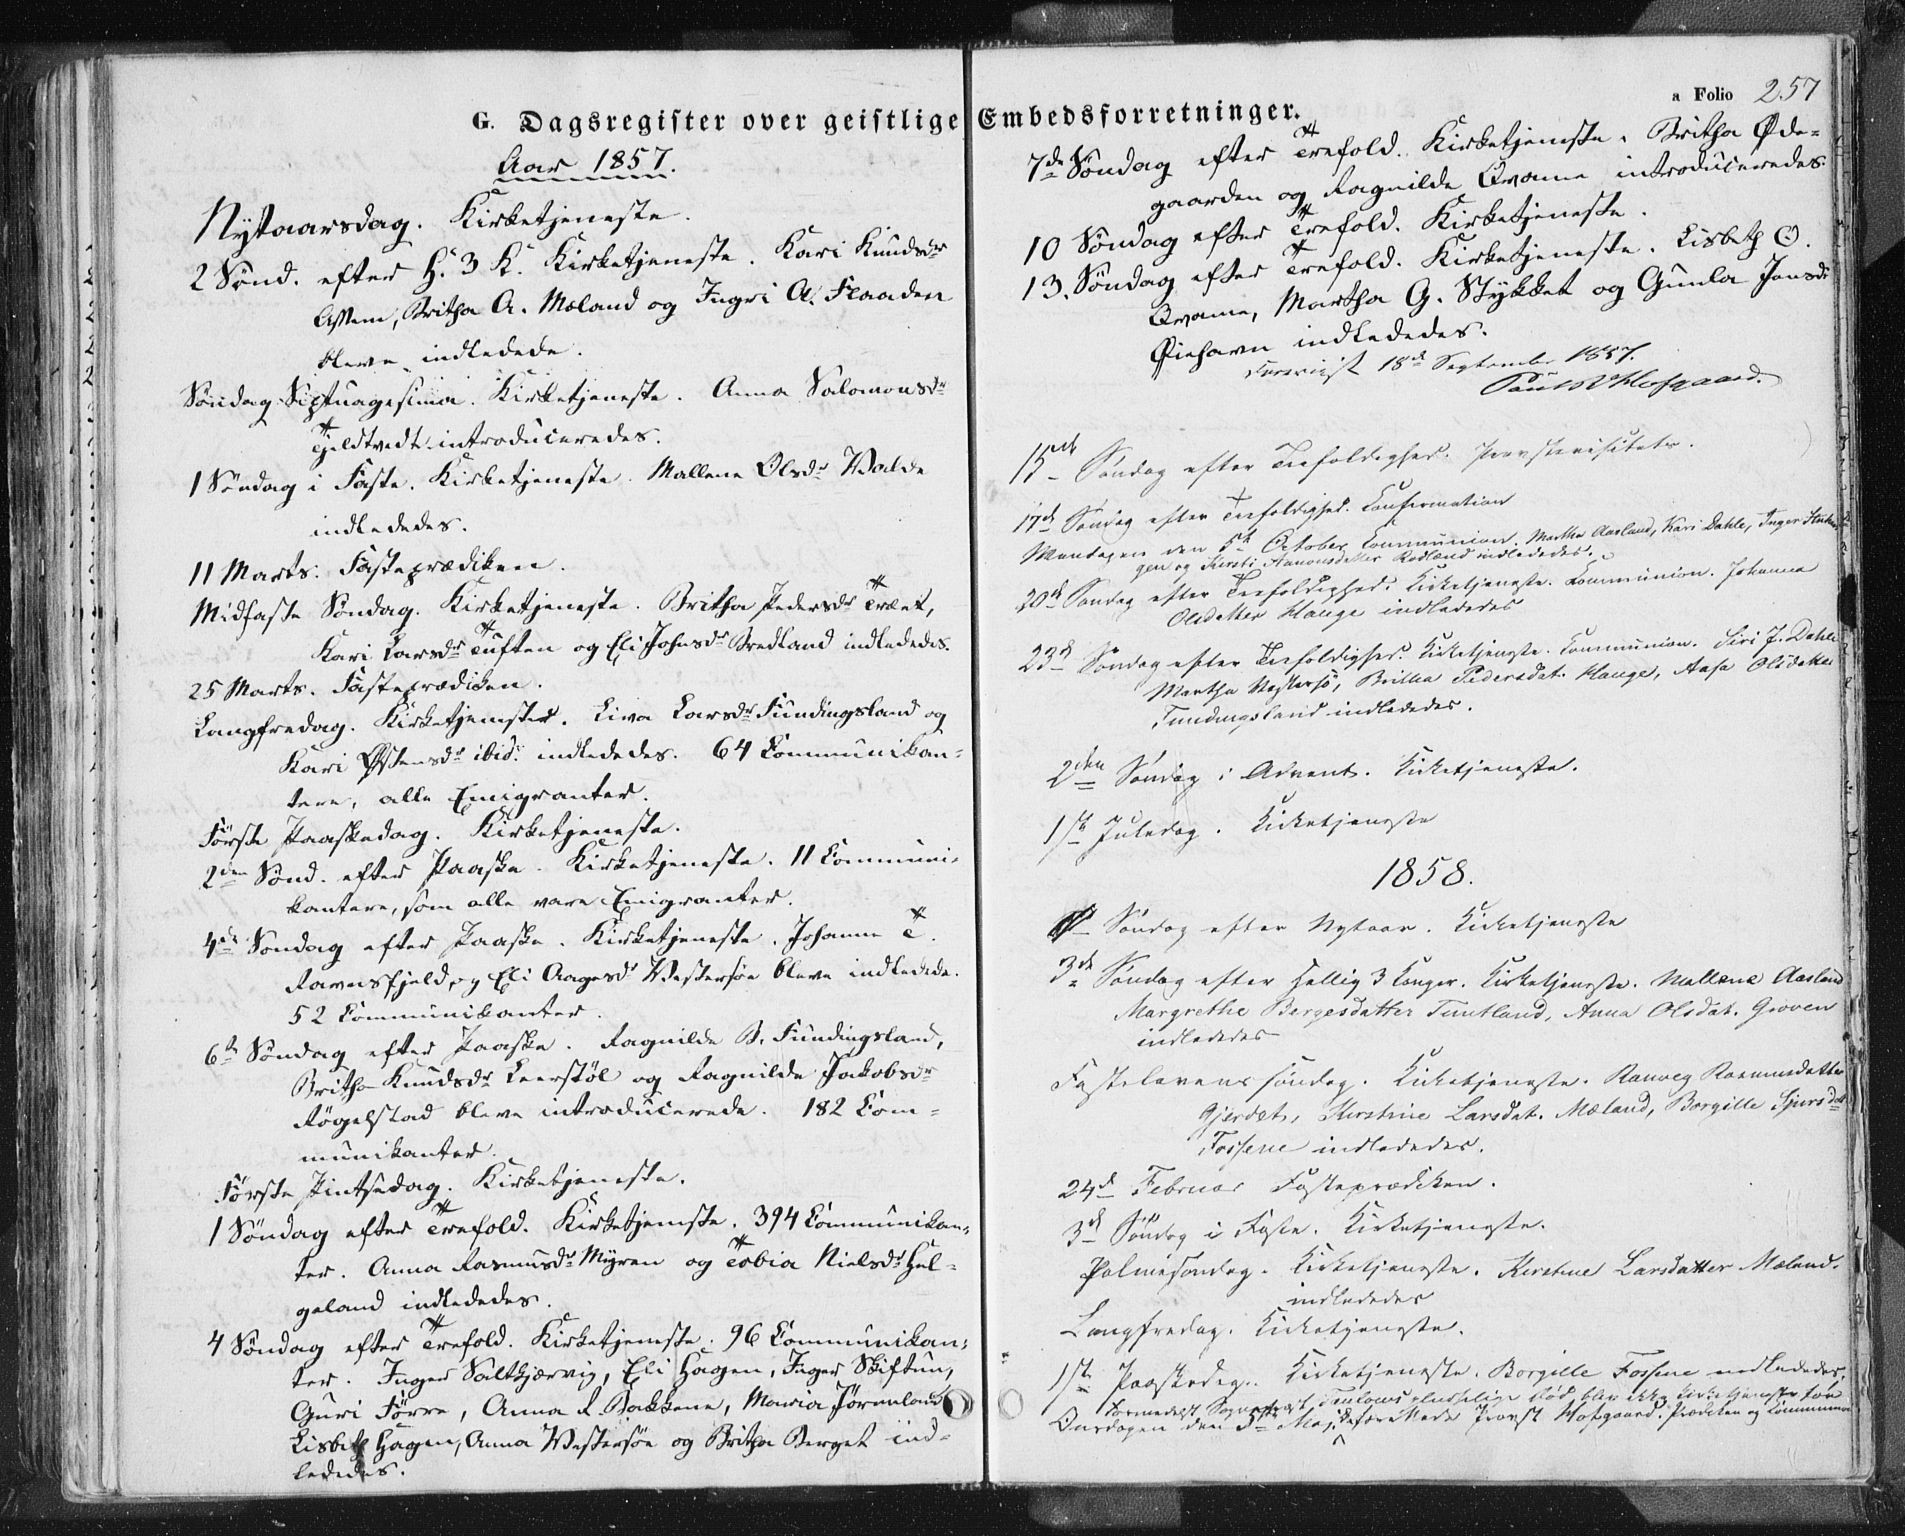 G. Dagsregister over geistlige Embedsforretninger.
a Folio 257
Aar 1857.
Nytaarsdag. Kirketjeneste.
2 Sønd. efter H. 3 K. Kirketjeneste. Kari Knudsdr
Britha A. Mæland og Ingri A. Flaaden
bleve indledede.
Søndag Septuagesima. Kirketjeneste. Anna Salomonsdr
Tjeldtvedt introduceredes.
1 Søndag i Faste. Kirketjeneste. Mallene Olsdr Walde
indlededes.
11 Marts. Fasteprædiken.
Midfaste Søndag. Kirketjeneste. Britha Pedersdr Træet,
Kari Larsdr Tuften og Eli Johnsdr Bredland indlededes.
25 Marts. Fasteprædiken.
Langfredag. Kirketjeneste. Liva Larsdr Fundingsland og
Kari Østensdr ibid. indlededes. 64 Communikan-
tere, alle Emigranter.
Første Paaskedag. Kirketjeneste.
2den Sønd. efter Paaske. Kirketjeneste. 11 Communi-
kantere, som alle vare Emigranter.
4de Søndag efter Paaske. Kirketjeneste. Johanne T.
Ravnsfjeld, og Eli Aagesdr Vestersøe bleve indledede.
52 Communikanter.
6te Søndag efter Paaske. Ragnilde B. Fundingsland,
Britha Knudsdr Leerstøl og Ragnilde Jakobsdr
Røgelstad bleve introducerede. 182 Com-
munikanter.
Første Pintsedag. Kirketjeneste.
1 Søndag efter Trefold. Kirketjeneste. 394 Communikan-
ter. Anna Rasmusdr Myren og Tobia Nielsdr Hel-
geland indlededes.
4 Søndag efter Trefold. Kirketjeneste. 96 Communikan-
ter. Inger Saltkjærvig, Eli Hagen, Inger Skiftun,
Guri Førre, Anna R. Bakkene, Maria Førreland
Lisbeth Hagen, Anna Vestersøe og Britha Berget ind-
lededes.
7de Søndag efter Trefold. Kirketjeneste. Britha Øde-
gaarden og Ragnilde Qvame introduceredes.
10 Søndag efter Trefold. Kirketjeneste.
13. Søndag efter Trefold. Kirketjeneste. Lisbeth O.
Qvame, Martha G. Stykket og Gunla Jonsdr
Øiehavn indlededes.
18de September 1857.
Hofgaard.
15de Søndag efter Trefoldighed. Provstevisitats.
17de Søndag efter Trefoldighed. Confirmation
Mandagen den 5te October Communion. Martha Aarland, Kari Dahle, Inger
og Kirsti Aanonsdatter Rødland indlededes.
20de Søndag efter Trefoldighed. Kirketjeneste. Communion. Johanna
Olsdatter Hauge indlededes
23de Søndag efter Trefoldighed. Kirketjeneste. Communion. Siri J. Dahle
Martha Vestersø, Britha Pedersdat. Hauge, Aasa Olsdatter
Fundingsland indlededes.
2den Søndag i Advent. Kirketjeneste.
1ste Juledag. Kirketjeneste
1858.
Søndag efter Nytaar. Kirketjeneste
3de Søndag efter Hellig 3 Konger. Kirketjeneste. Mallene Aarland
Margrethe Bergesdatter Tuntland, Anna Olsdat. Groven
indlededes
Fastelavenssøndag. Kirketjeneste. Ranveg Rasmusdatter
Gjerdet, Kirstine Larsdat. Mæland, Borgille Sjursdat
Fossene indlededes.
24de Februar Fasteprædiken.
3de Søndag i Faste. Kirketjeneste.
Palmesøndag. Kirketjeneste. Kirstine Larsdatter Mæland.
indlededes
Langfredag. Kirketjeneste.
1ste Paaskedag. Kirketjeneste. Borgille Fossene indlededes.
Formedelst Sognepræst død blev ikke Kirketjeneste før
Onsdagen den 5te Mai, da forrettede Provst Hofgaard. Prædiken og Communion